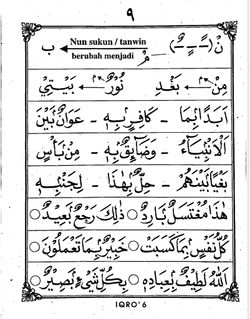 ٩
نْ (ــًــٍــٌ) Nun sukun / tanwin berubah menjadi مْ ب
مِنْۢ بَعْدِ نُوْرٌۢ بَيْتِيْ
اَبَدًاۢ بِمَا - كَافِرٍۢ بِهٖ - عَوَانٌۢ بَيْنَ
اَلْاَنْۢبِيَآءُ - وَضَآئِقٌۢ بِهٖ - مِنْۢ بَأْسٍ
بَغْيًاۢ بَيْنَهُمْ - حِلٌّۢ بِهٰذَا - لِجَنْۢبِهٖ
هٰذَا مُغْتَسَلٌۢ بَارِدٌ ○ ذٰلِكَ رَجْعٌۢ بَعِيْدٌ ○
كُلُّ نَفْسٍۢ بِمَا كَسَبَتْ ○ خَبِيْرٌۢ بِمَا تَعْمَلُوْنَ ○
اَللّٰهُ لَطِيْفٌۢ بِعِبَادِهٖ ○ بِكُلِّ شَيْءٍۢ بَصِيْرٌ ○
IQRO' 6